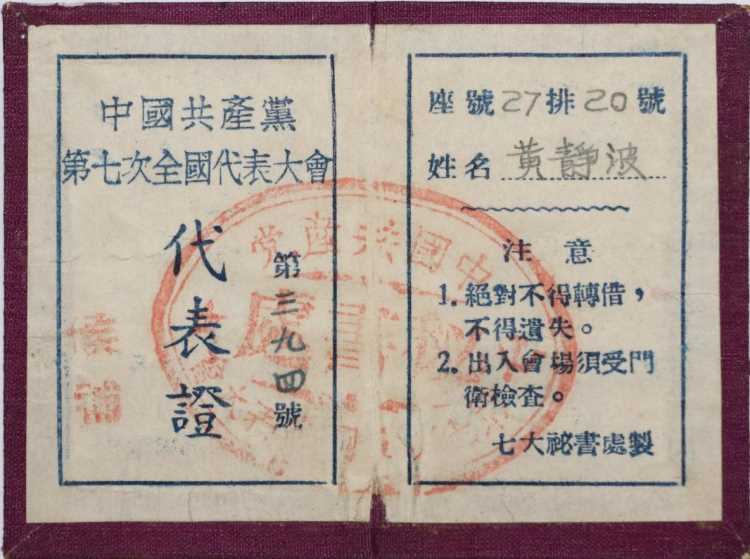 中國共產黨
第七次全國代表大會
代表證
第三九四號
座號27排20號
姓名 黃靜波
注意
1. 絕對不得轉借，
不得遺失。
2. 出入會場須受門
衛檢查。
七大祕書處製
中国共産党